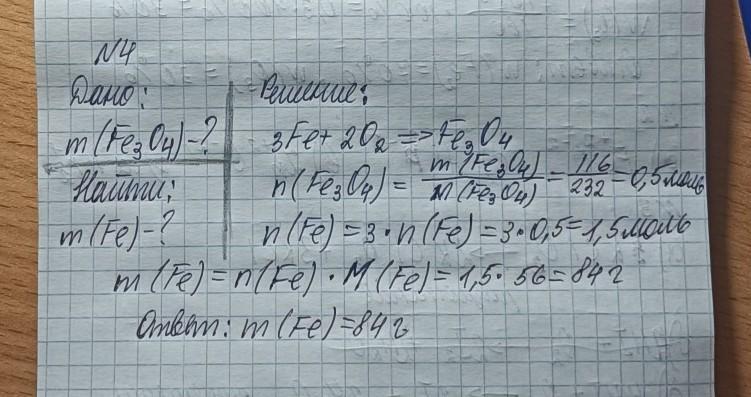 N4
Дано:
m(Fe₃O₄)-?
Найти:
m(Fe)-?
Решение:
3Fe+2O₂=>Fe₃O₄
n(Fe₃O₄)=m(Fe₃O₄)/M(Fe₃O₄)=116/232=0,5моль
n(Fe)=3·n(Fe)=3·0,5=1,5моль
m(Fe)=n(Fe)·M(Fe)=1,5·56=84г
Ответ: m(Fe)=84г